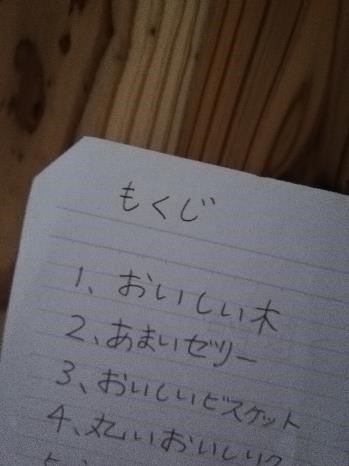 もくじ
1、おいしい木
2、あまいゼリー
3、おいしいビスケット
4、丸いおいしい
5、